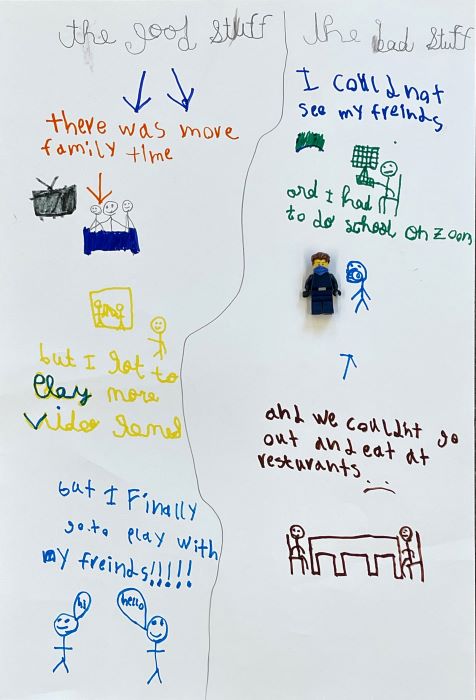 the good stuff
there was more
family time
but I got to
Play more
Video games
but I Finally
go to play with
my freinds!!!!!
hi
hello
the bad stuff
I could not
see my freinds
and I had
to do school on zoom
and we couldnt go
out and eat at
resturants